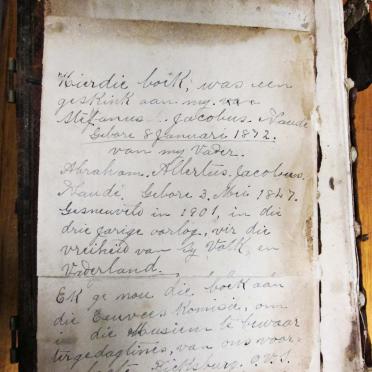 Hierdie boik, was een
geskink aan my. van
Steffanus. Jacobus. Naude
Gebore 8 Januari 1872.
van my Vader.
Abraham. Albertus. Jacobus.
Naude. Gebore 3. Mei 1847.
Gesneuveld in 1901, in die
drie jarige oorlog, vir die
vreiheid van sy Volk, en
Vaderland.
Ek ge nou die boek aan
die Eeuvees Komisie, om
in die Musium te bewaar
van ons voor-
Ficksburg. O.V.S.